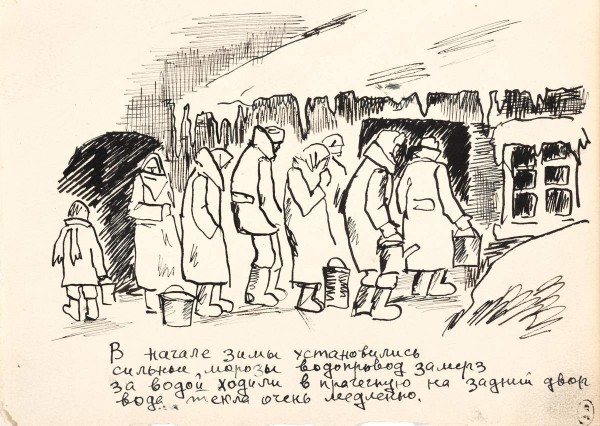 В начале зимы установились
сильные морозы водопровод замерз
за водой ходили в прачечную на задний двор
вода текла очень медленно.